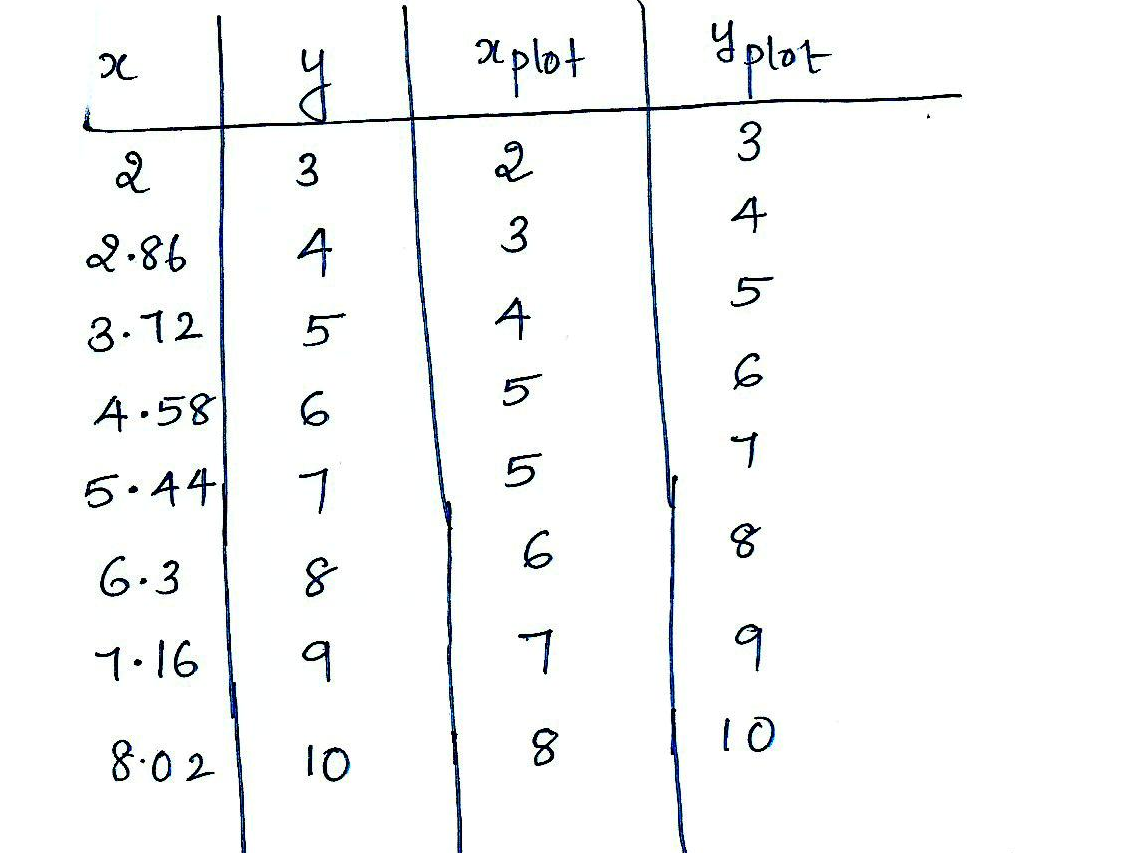 x y xplot yplot
2 3 2 3
2.86 4 3 4
3.72 5 4 5
4.58 6 5 6
5.44 7 5 7
6.3 8 6 8
7.16 9 7 9
8.02 10 8 10